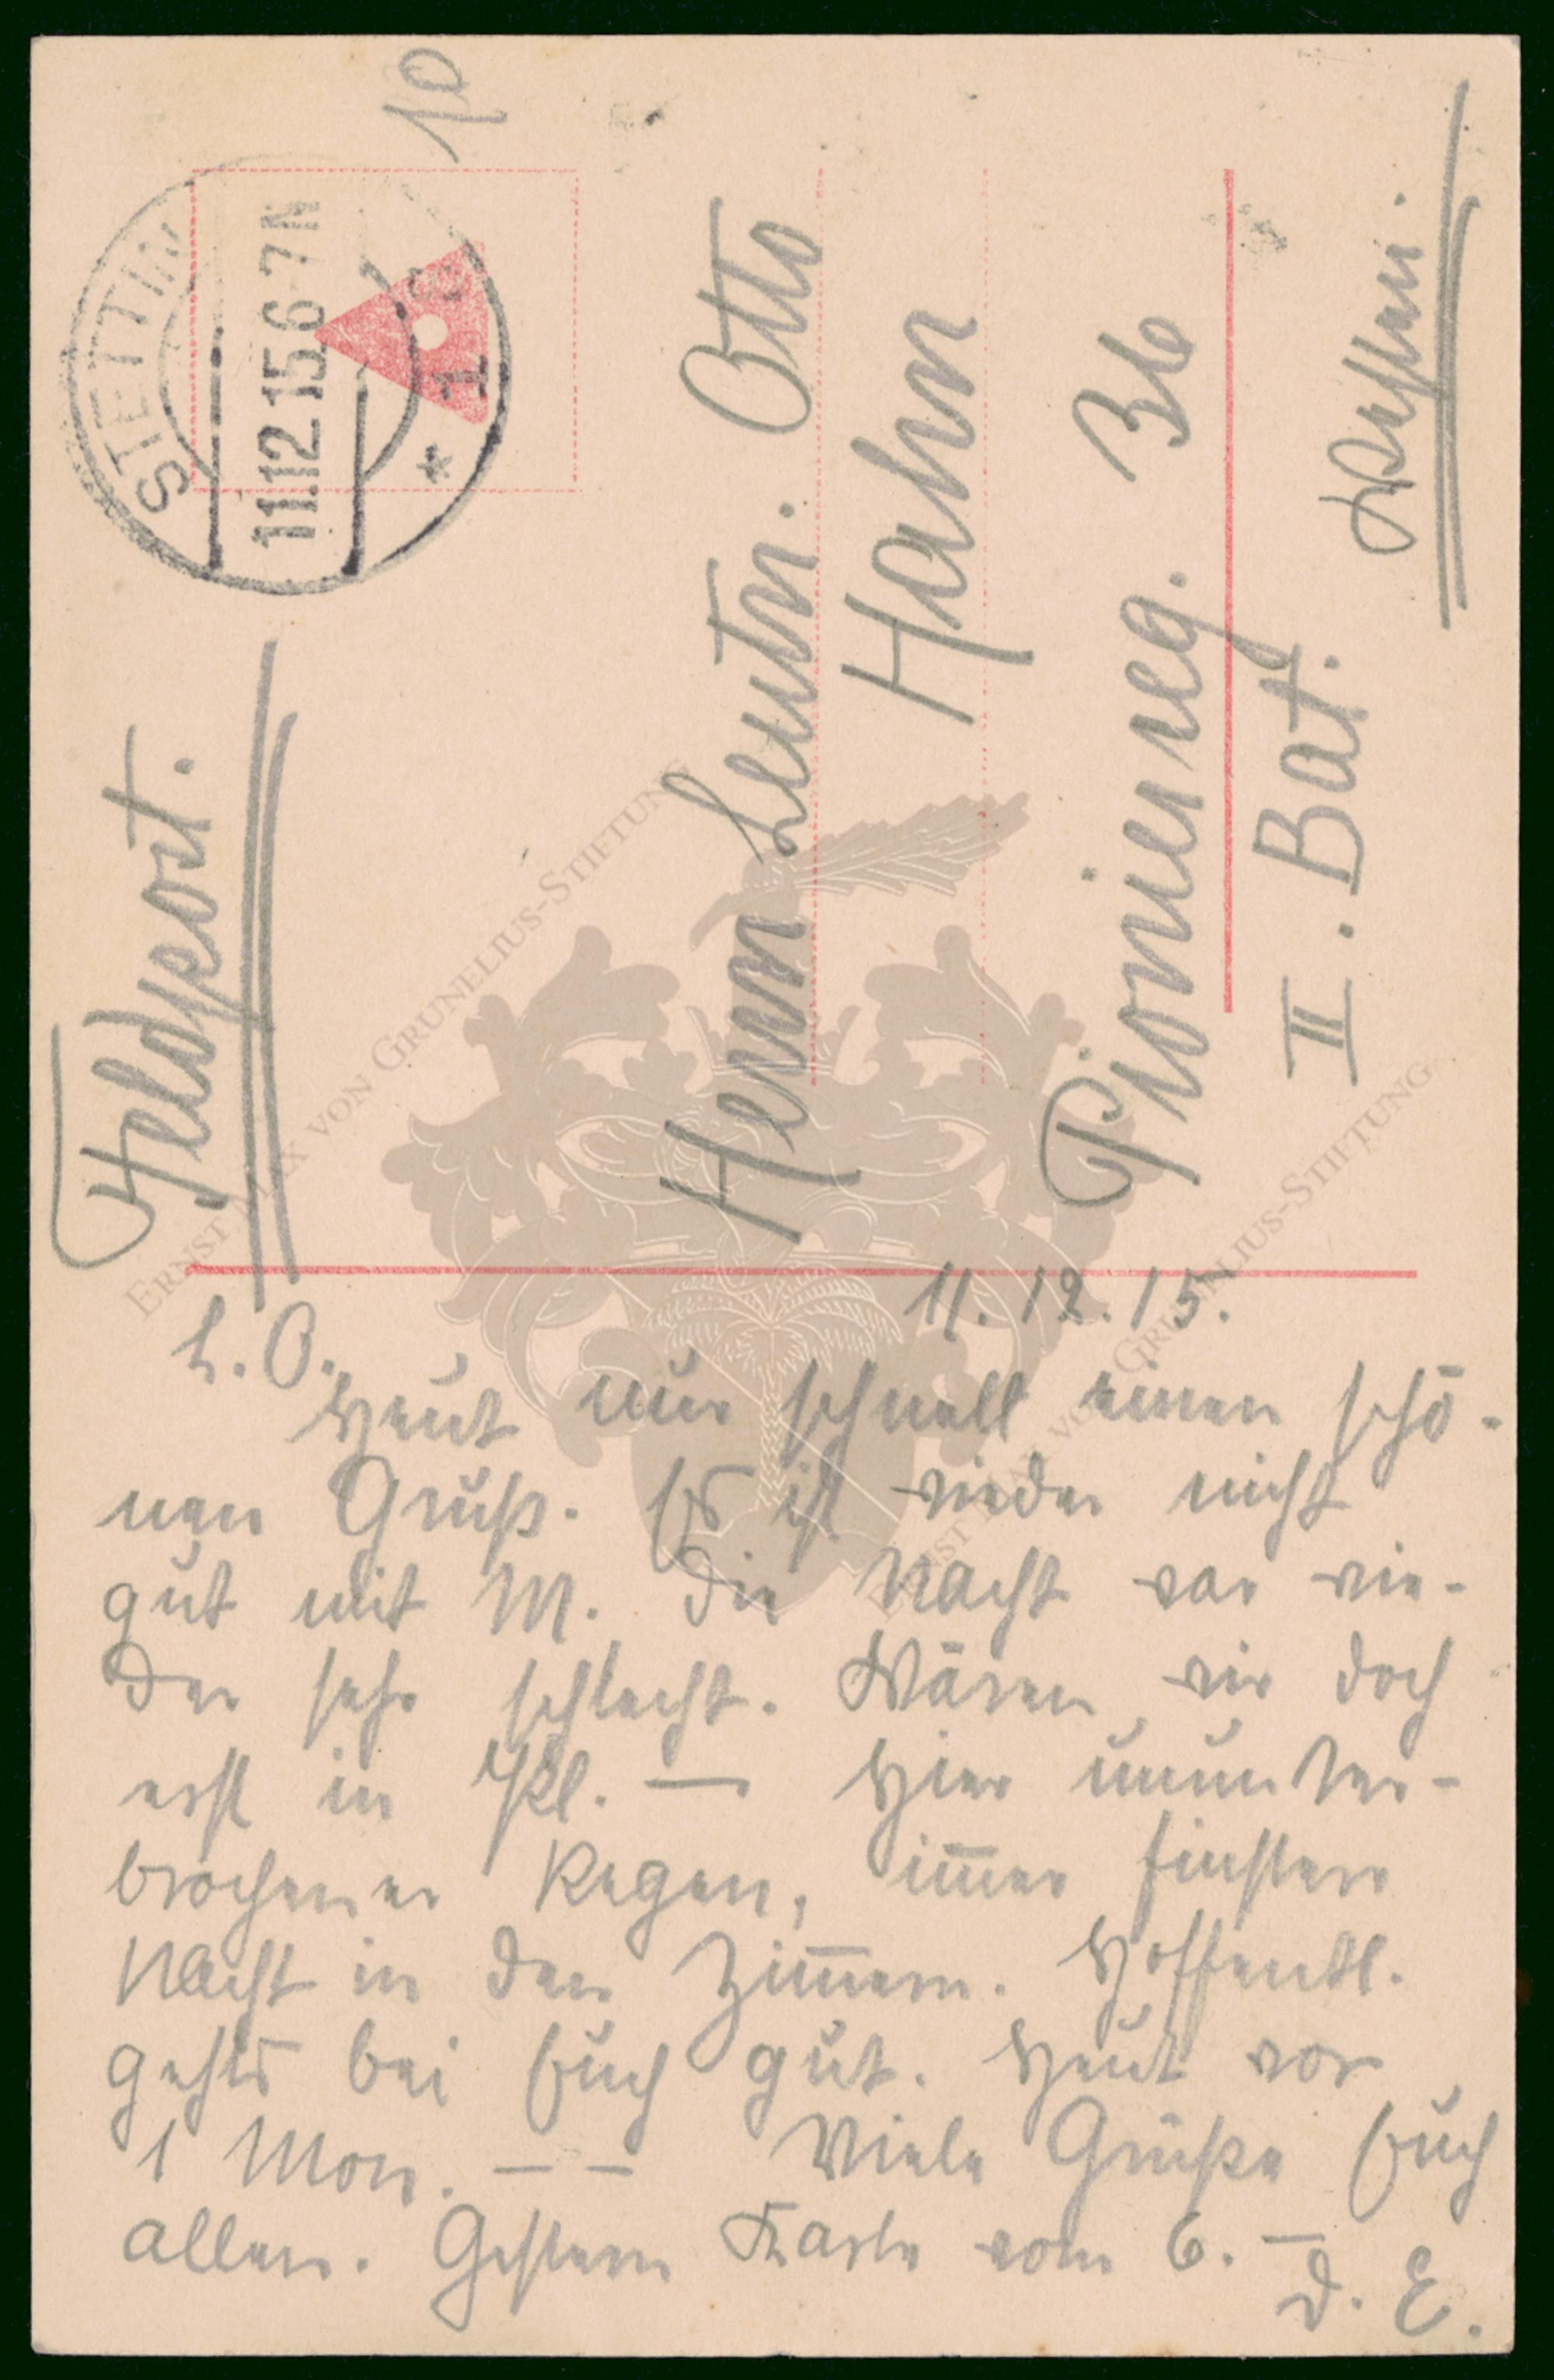 Feldpost.
STETTIN
11.12.15.6-7N
* 1
10
Herrn Leutn. Otto
Hahn
Pionierreg. 36
II. Bat.
Westen.
11.12.15.
L. O.
Heut nur schnell einen schö-
nen Gruß. Es ist wieder nicht
gut mit M. Die Nacht war wie-
der sehr schlecht. Wären wir doch
erst in Kl. — Hier ununter-
brochener Regen, immer finstere
Nacht in den Zimmern. Hoffentl.
gehts bei Euch gut. Heut vor
1 Mon. — — Viele Grüße Euch
allen. Gestern Karte vom 6. —
D. E.
ERNST MAX VON GRUNELIUS-STIFTUNG
ERNST MAX VON GRUNELIUS-STIFTUNG